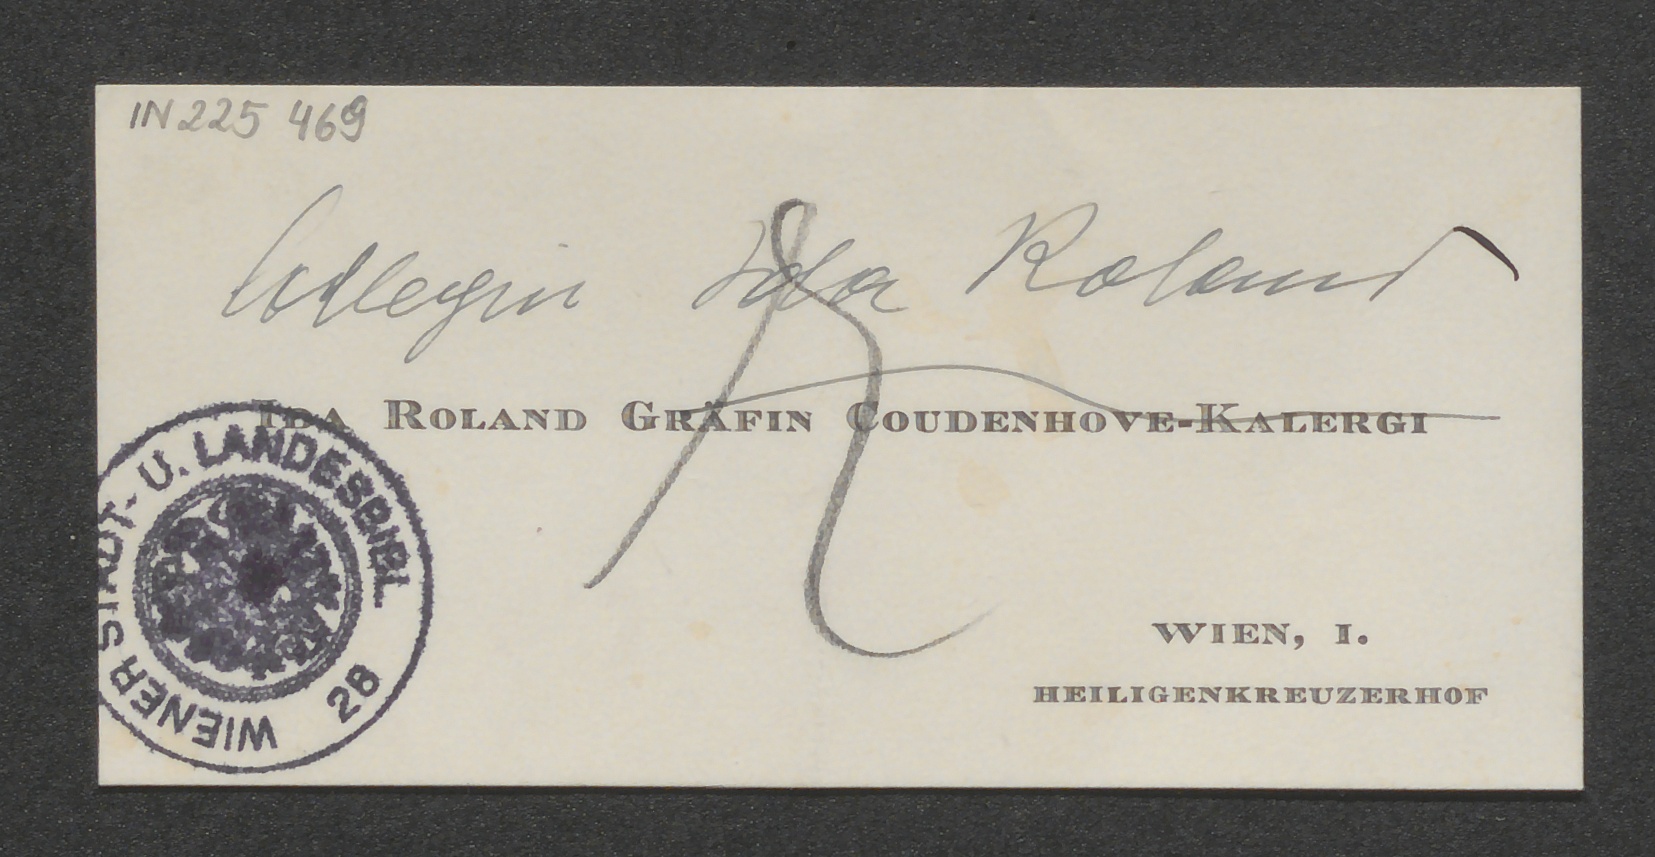 IN 225 469
Collegin Ida Roland
IDA ROLAND GRÄFIN COUDENHOVE-KALERGI
WIENER STADT- U. LANDESBIBL
28
WIEN, I.
HEILIGENKREUZERHOF